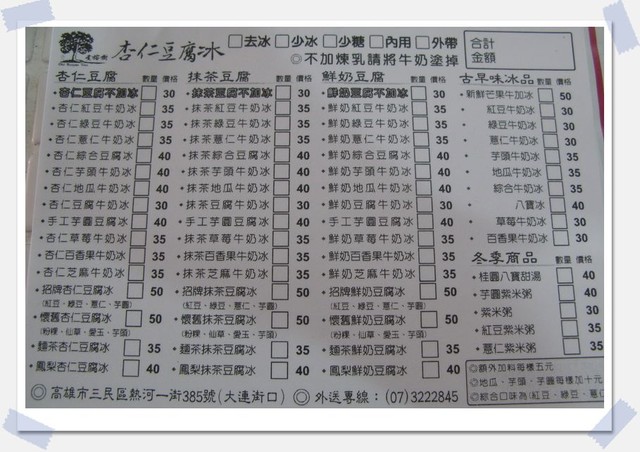 杏仁豆腐冰 □去冰 □少冰 □少糖 □內用 □外帶
◎不加煉乳請將牛奶塗掉
合計
金額
杏仁豆腐 數量 價格
•杏仁豆腐不加冰 □ 30
•杏仁紅豆牛奶冰 □ 35
•杏仁綠豆牛奶冰 □ 35
•杏仁薏仁牛奶冰 □ 35
•杏仁綜合豆腐冰 □ 40
•杏仁芋頭牛奶冰 □ 40
•杏仁地瓜牛奶冰 □ 40
•杏仁豆腐牛奶冰 □ 30
•手工芋圓豆腐冰 □ 40
•杏仁草莓牛奶冰 □ 35
•杏仁百香果牛奶冰 □ 35
•杏仁芝麻牛奶冰 □ 35
•招牌杏仁豆腐冰 □ 50
(紅豆、綠豆、薏仁、芋圓)
•懷舊杏仁豆腐冰 □ 50
(粉粿、仙草、愛玉、芋頭)
•麵茶杏仁豆腐冰 □ 35
•鳳梨杏仁豆腐冰 □ 40
抹茶豆腐 數量 價格
•抹茶豆腐不加冰 □ 30
•抹茶紅豆牛奶冰 □ 35
•抹茶綠豆牛奶冰 □ 35
•抹茶薏仁牛奶冰 □ 35
•抹茶綜合豆腐冰 □ 40
•抹茶芋頭牛奶冰 □ 40
•抹茶地瓜牛奶冰 □ 40
•抹茶豆腐牛奶冰 □ 30
•手工芋圓豆腐冰 □ 40
•抹茶草莓牛奶冰 □ 35
•抹茶百香果牛奶冰 □ 35
•抹茶芝麻牛奶冰 □ 35
•招牌抹茶豆腐冰 □ 50
(紅豆、綠豆、薏仁、芋圓)
•懷舊抹茶豆腐冰 □ 50
(粉粿、仙草、愛玉、芋頭)
•麵茶抹茶豆腐冰 □ 35
•鳳梨抹茶豆腐冰 □ 40
鮮奶豆腐 數量 價格
•鮮奶豆腐不加冰 □ 30
•鮮奶紅豆牛奶冰 □ 35
•鮮奶綠豆牛奶冰 □ 35
•鮮奶薏仁牛奶冰 □ 35
•鮮奶綜合豆腐冰 □ 40
•鮮奶芋頭牛奶冰 □ 40
•鮮奶地瓜牛奶冰 □ 40
•鮮奶豆腐牛奶冰 □ 30
•手工芋圓豆腐冰 □ 40
•鮮奶草莓牛奶冰 □ 35
•鮮奶百香果牛奶冰 □ 35
•鮮奶芝麻牛奶冰 □ 35
•招牌鮮奶豆腐冰 □ 50
(紅豆、綠豆、薏仁、芋圓)
•懷舊鮮奶豆腐冰 □ 50
(粉粿、仙草、愛玉、芋頭)
•麵茶鮮奶豆腐冰 □ 35
•鳳梨鮮奶豆腐冰 □ 40
古早味冰品 數量 價格
•新鮮芒果牛加冰 □ 50
•紅豆牛奶冰 □ 30
•綠豆牛奶冰 □ 30
•薏仁牛奶冰 □ 30
•芋頭牛奶冰 □ 35
•地瓜牛奶冰 □ 35
•綜合牛奶冰 □ 35
•八寶冰 □ 40
•草莓牛奶冰 □ 30
•百香果牛奶冰 □ 30
冬季商品 數量 價格
•桂圓八寶甜湯 □ 40
•芋圓紫米粥 □ 40
•紫米粥 □ 30
•紅豆紫米粥 □ 35
•薏仁紫米粥 □ 35
◎額外加料每樣五元
◎地瓜、芋頭、芋圓每樣加十元
◎綜合口味為(紅豆、綠豆、薏仁
◎高雄市三民區熱河一街385號(大連街口) ◎外送專線：(07)3222845